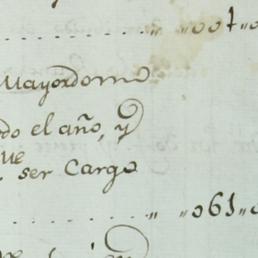 „ „007„0
Mayordomo
do el año, y
ue
ser Cargo
„ „061„0